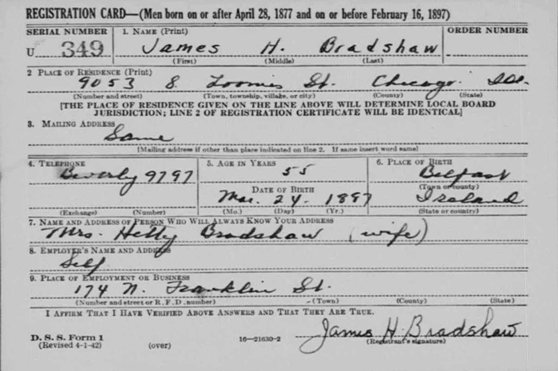 REGISTRATION CARD—(Men born on or after April 28, 1877 and on or before February 16, 1897)
SERIAL NUMBER 1. NAME (Print) ORDER NUMBER
U 349 James H. Bradshaw
(First) (Middle) (Last)
2 PLACE OF RESIDENCE (Print)
9053 S. Loomis St. Chicago Ill.
(Number and street) (Town, township, village, or city) (County) (State)
[THE PLACE OF RESIDENCE GIVEN ON THE LINE ABOVE WILL DETERMINE LOCAL BOARD
JURISDICTION; LINE 2 OF REGISTRATION CERTIFICATE WILL BE IDENTICAL]
3. MAILING ADDRESS
Same
[Mailing address if other than place indicated on line 2. If same insert word same]
4. TELEPHONE 5. AGE IN YEARS 6. PLACE OF BIRTH
Beverly 9797 55 Belfast
DATE OF BIRTH (Town or county)
Mar. 24, 1887 Ireland
(Exchange) (Number) (Mo.) (Day) (Yr.) (State or country)
7. NAME AND ADDRESS OF PERSON WHO WILL ALWAYS KNOW YOUR ADDRESS
Mrs. Bradshaw (wife)
8. EMPLOYER'S NAME AND ADDRESS
Self
9. PLACE OF EMPLOYMENT OR BUSINESS
174 N. Franklin St.
(Number and street or R. F. D. number) (Town) (County) (State)
I AFFIRM THAT I HAVE VERIFIED ABOVE ANSWERS AND THAT THEY ARE TRUE.
James H. Bradshaw
D. S. S. Form 1
(Revised 4-1-42) (over) 16—21630-2 (Registrant's signature)